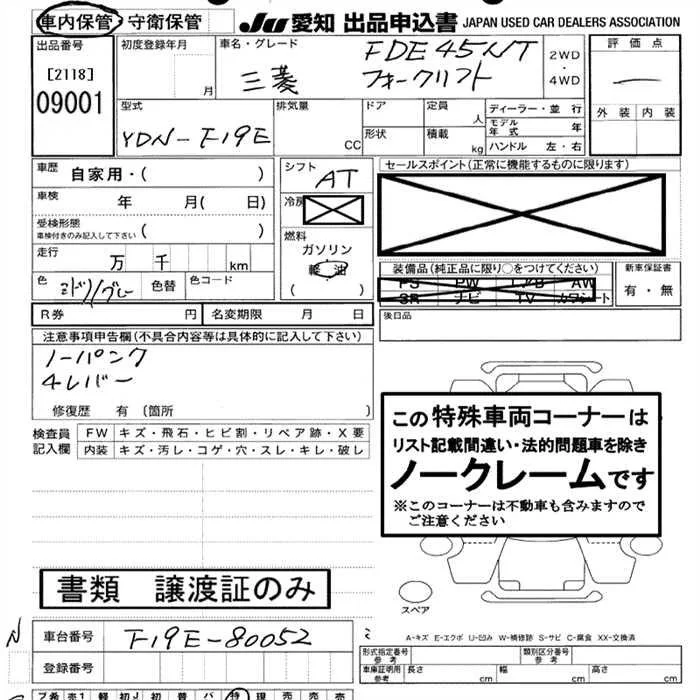 車内保管・守衛保管 JU 愛知 出品申込書 JAPAN USED CAR DEALERS ASSOCIATION
出品番号
[2118]
09001
初度登録年月
月
車名・グレード
三菱
FDE45NT
フォークリフト
2WD
・
4WD
評価点
外装 内装
型式
YDN-F19E
排気量
CC
ドア
形状
定員
人
積載
kg
ディーラー・並行
モデル年式 年
ハンドル 左・右
車歴 自家用・( )
車検 年 月( 日)
受検形態
車検付きのみ記入して下さい ( )
走行 万 千 km
色 ミドリ/グレー 色替 色コード
シフト
AT
冷房
燃料
ガソリン
軽油
( )
セールスポイント(正常に機能するものに限ります)
装備品(純正品に限り○をつけてください)
PS PW エアB AW
SR ナビ TV カワシート
新車保証書
有・無
R券 円 名変期限 月 日
後日品
注意事項申告欄(不具合内容等は具体的に記入して下さい)
ノーパンク
4レバー
修復歴 有(箇所 )
検査員
記入欄
FW キズ・飛石・ヒビ割・リペア跡・X要
内装 キズ・汚し・コゲ・穴・スレ・キレ・破し
この特殊車両コーナーは
リスト記載間違い・法的問題車を除き
ノークレームです
※このコーナーは不動車も含みますので
ご注意ください
書類 譲渡証のみ
スペア
A-キズ E-エクボ U-凹み W-補修跡 S-サビ C-腐食 XX-交換済
N
車台番号 F19E-80052
登録番号
形式指定番号
参考
類別区分番号
参考
車庫証明用
参考
長さ cm 幅 cm 高さ cm